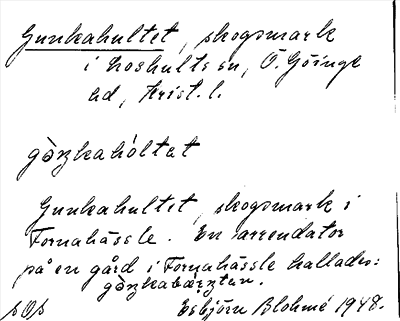 Gunkahultet, skogsmark
i Loshults sn, Ö. Göinge
hd, Krist. l.
gòŋkahóltat
Gunkahultet, skogsmark i
Fornahässle. En arrendator
på en gård i Fornahässle kallades:
Esbjörn Blohmé 1948.